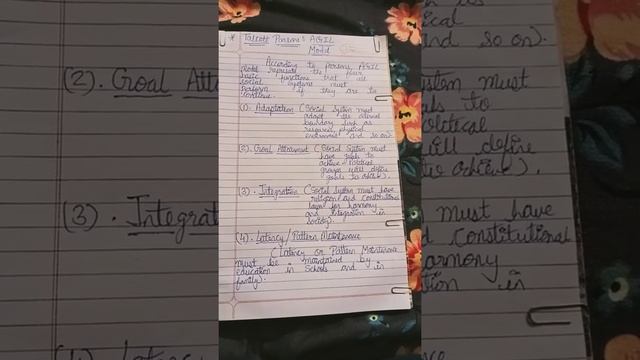 * Talcott Parsons's AGIL
Model
According to parsons, AGIL
model represents the four
basic functions that all
social systems must
perform if they are to
continue.
(1). Adaptation (Social System must
adapt its external
boundary such as
resources, physical
environment and so on).
(2). Goal Attainment (Social System must
have goals to
achieve. Political
groups will define
goals to achieve).
(3). Integration (Social system must have
religion and constitutional
laws for harmony
and integration in
society).
(4). Latency/Pattern Maintenance
(Latency or Pattern Maintenance
must be maintained by
education in Schools and in
family).
(2). Goal Atta
(3). Integrat
(4). Latency
and so on).
stem must
ls to
olitical
will define
to achieve).
must have
d Constitutional
armony
tion in